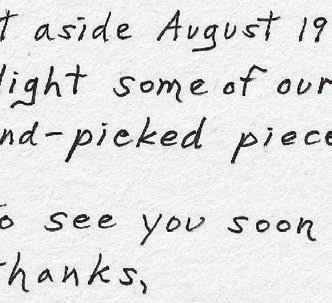 t aside August 19
light some of our
nd-picked piece
o see you soon
thanks,